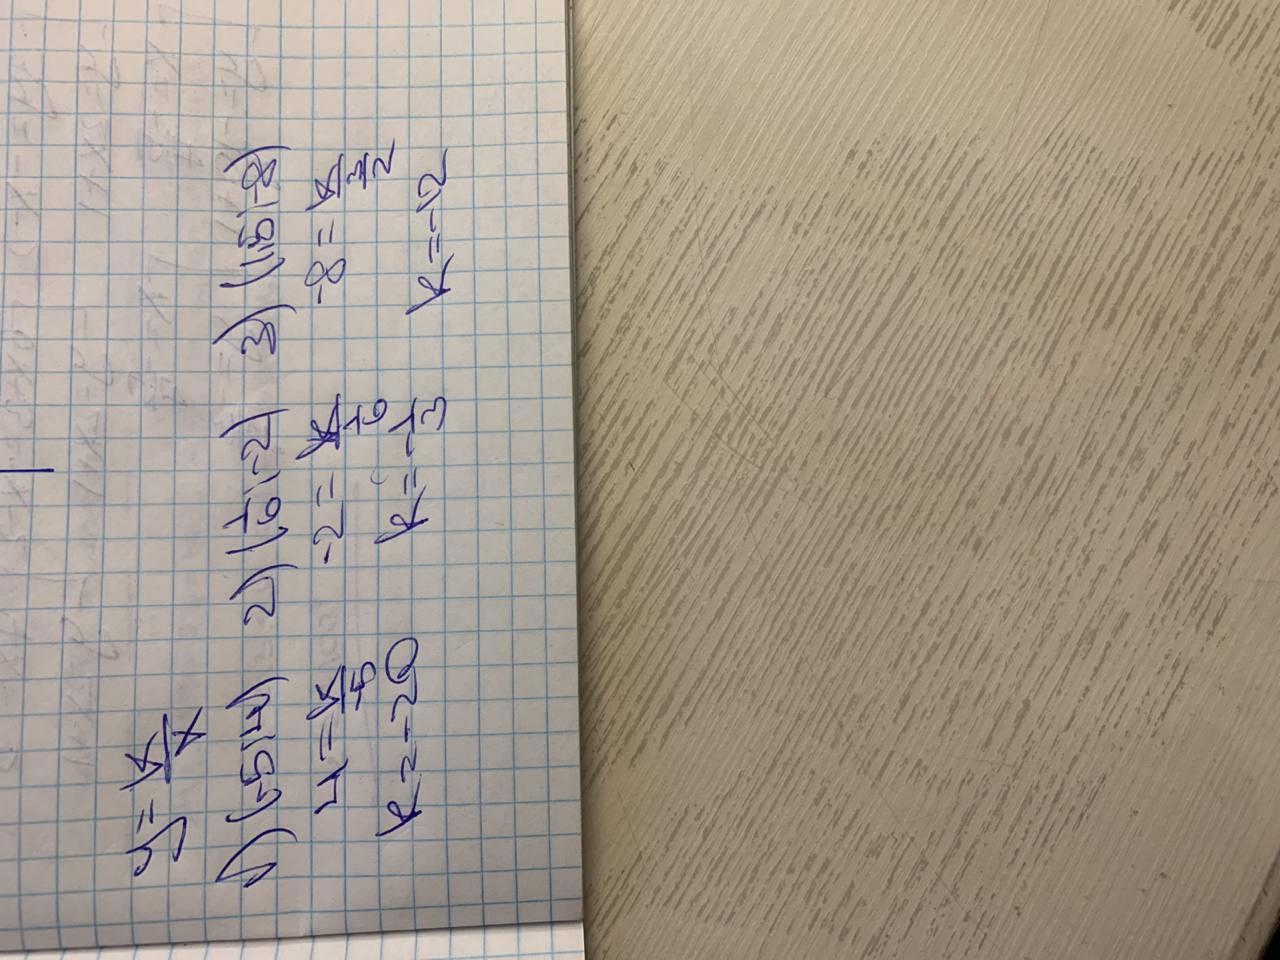 y = k/x
1) (-5; 4) 2) (1/6; -2) 3) (1,5; -8)
4 = k/-5 -2 = k/1/6 -8 = k/3/2
k = -20 k = -1/3 k = -12